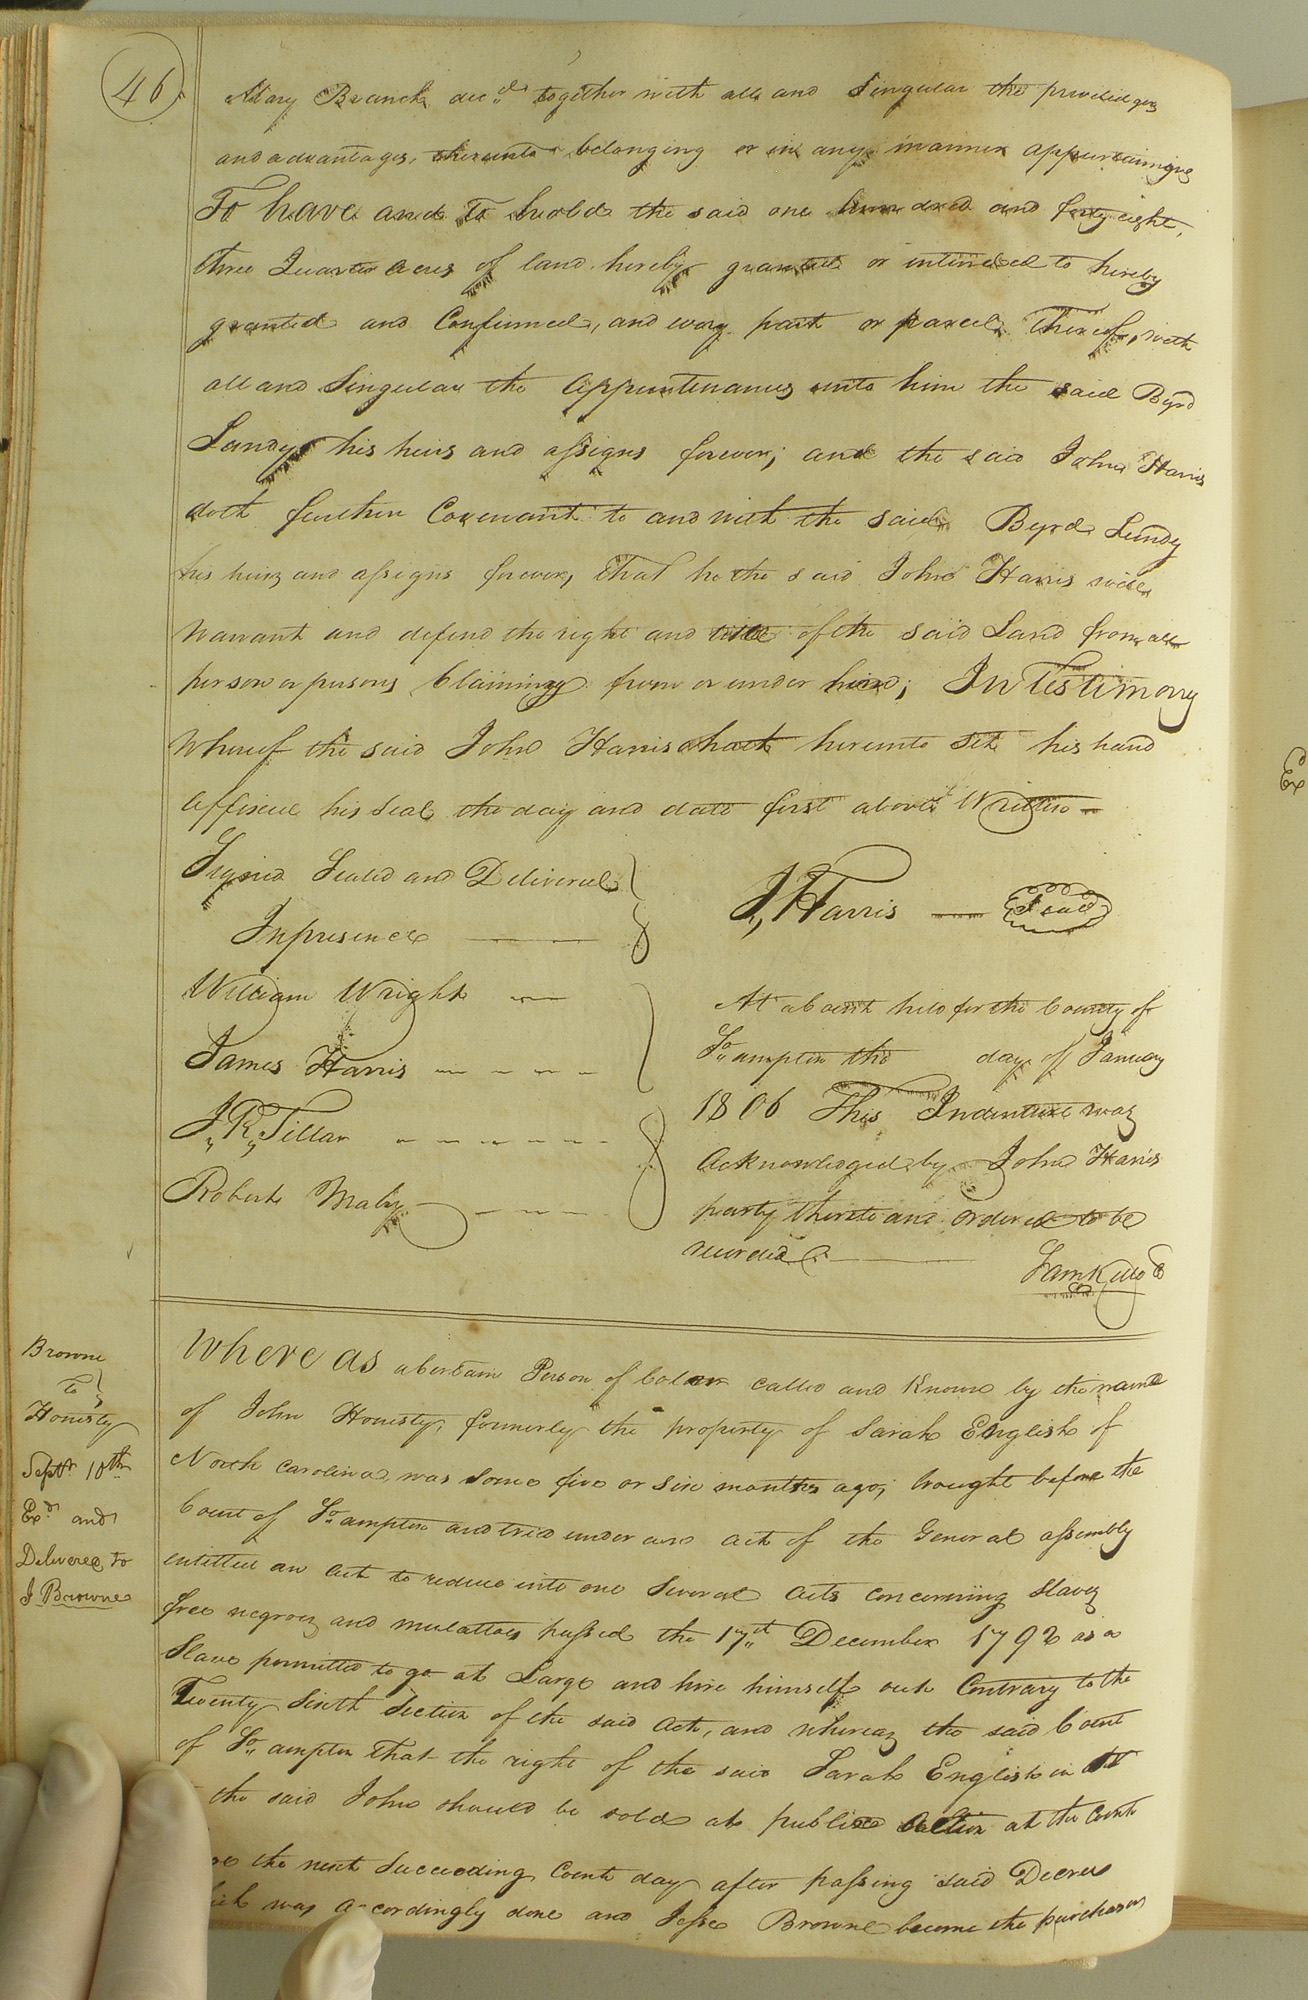 46
Mary Branch dec.d together with all and Singular the priviledges
and advantages, thereunto belonging or in any manner appurtaining
To have and To hold the said one hundred and forty eight,
three Quarter Acres of land hereby granted or intended to hereby
granted and Confirmed, and every part or parcel Thereof, with
all and Singular the Appurtenances unto him the said Byrd
Lundy his heirs and assigns forever; and the said John Harris
doth further Covenant to and with the said Byrd Lundy
his heirs and assigns forever, That he the said John Harris will
Warrant and defend the right and title of the said Land from all
person or persons Claiming from or under him; In Testimony
Whereof the said John Harris hath hereunto set his hand
Affixed his Seal the day and date first above Written
Signed Sealed and Delivered
In presence
J,, Harris — Seal
William Wright
James Harris
J,, R,, Tillar
Robert Mabry
At a Court held for the County of
So,,ampton the day of January
1806 This Indenture was
Acknowledged by John Harris
party thereto and Ordered to be
recorded
Browne
To
Honesty
Septr. 10th
Exd. and
Delivered to
J Browne
Where as a Certain Person of Colour called and Known by the name
of John Honesty, formerly the property of Sarah English of
North Carolina, was some five or six months ago, brought before the
Court of So,,ampton and tried under an act of the General assembly
entitled an Act to reduce into one Several Acts concerning Slaves
free negroes and mulattoes passed the 17,,th December 1792 as a
Slave permitted to go at Large and hire himself out Contrary to the
Twenty Sixth Section of the said Act, and whereas the said Court
of So,,ampton That the right of the said Sarah English in
the said John should be sold at public at the Court
the next Succeeding Court day after passing said Decree
was accordingly done and Jesse Browne became the purchaser
Ex